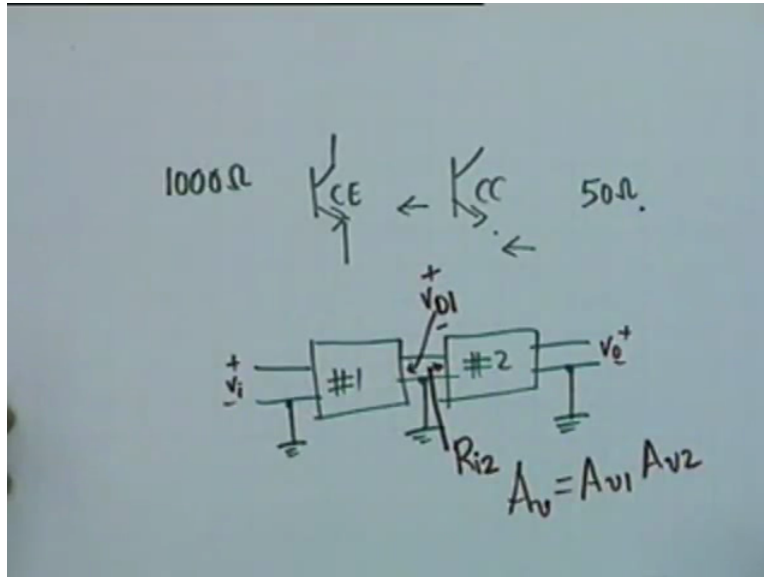 1000Ω CE ← CC 50Ω.
←
+
V01
-
+ Vi - #1 #2 V0 +
-
Ri2
Av = Av1 Av2